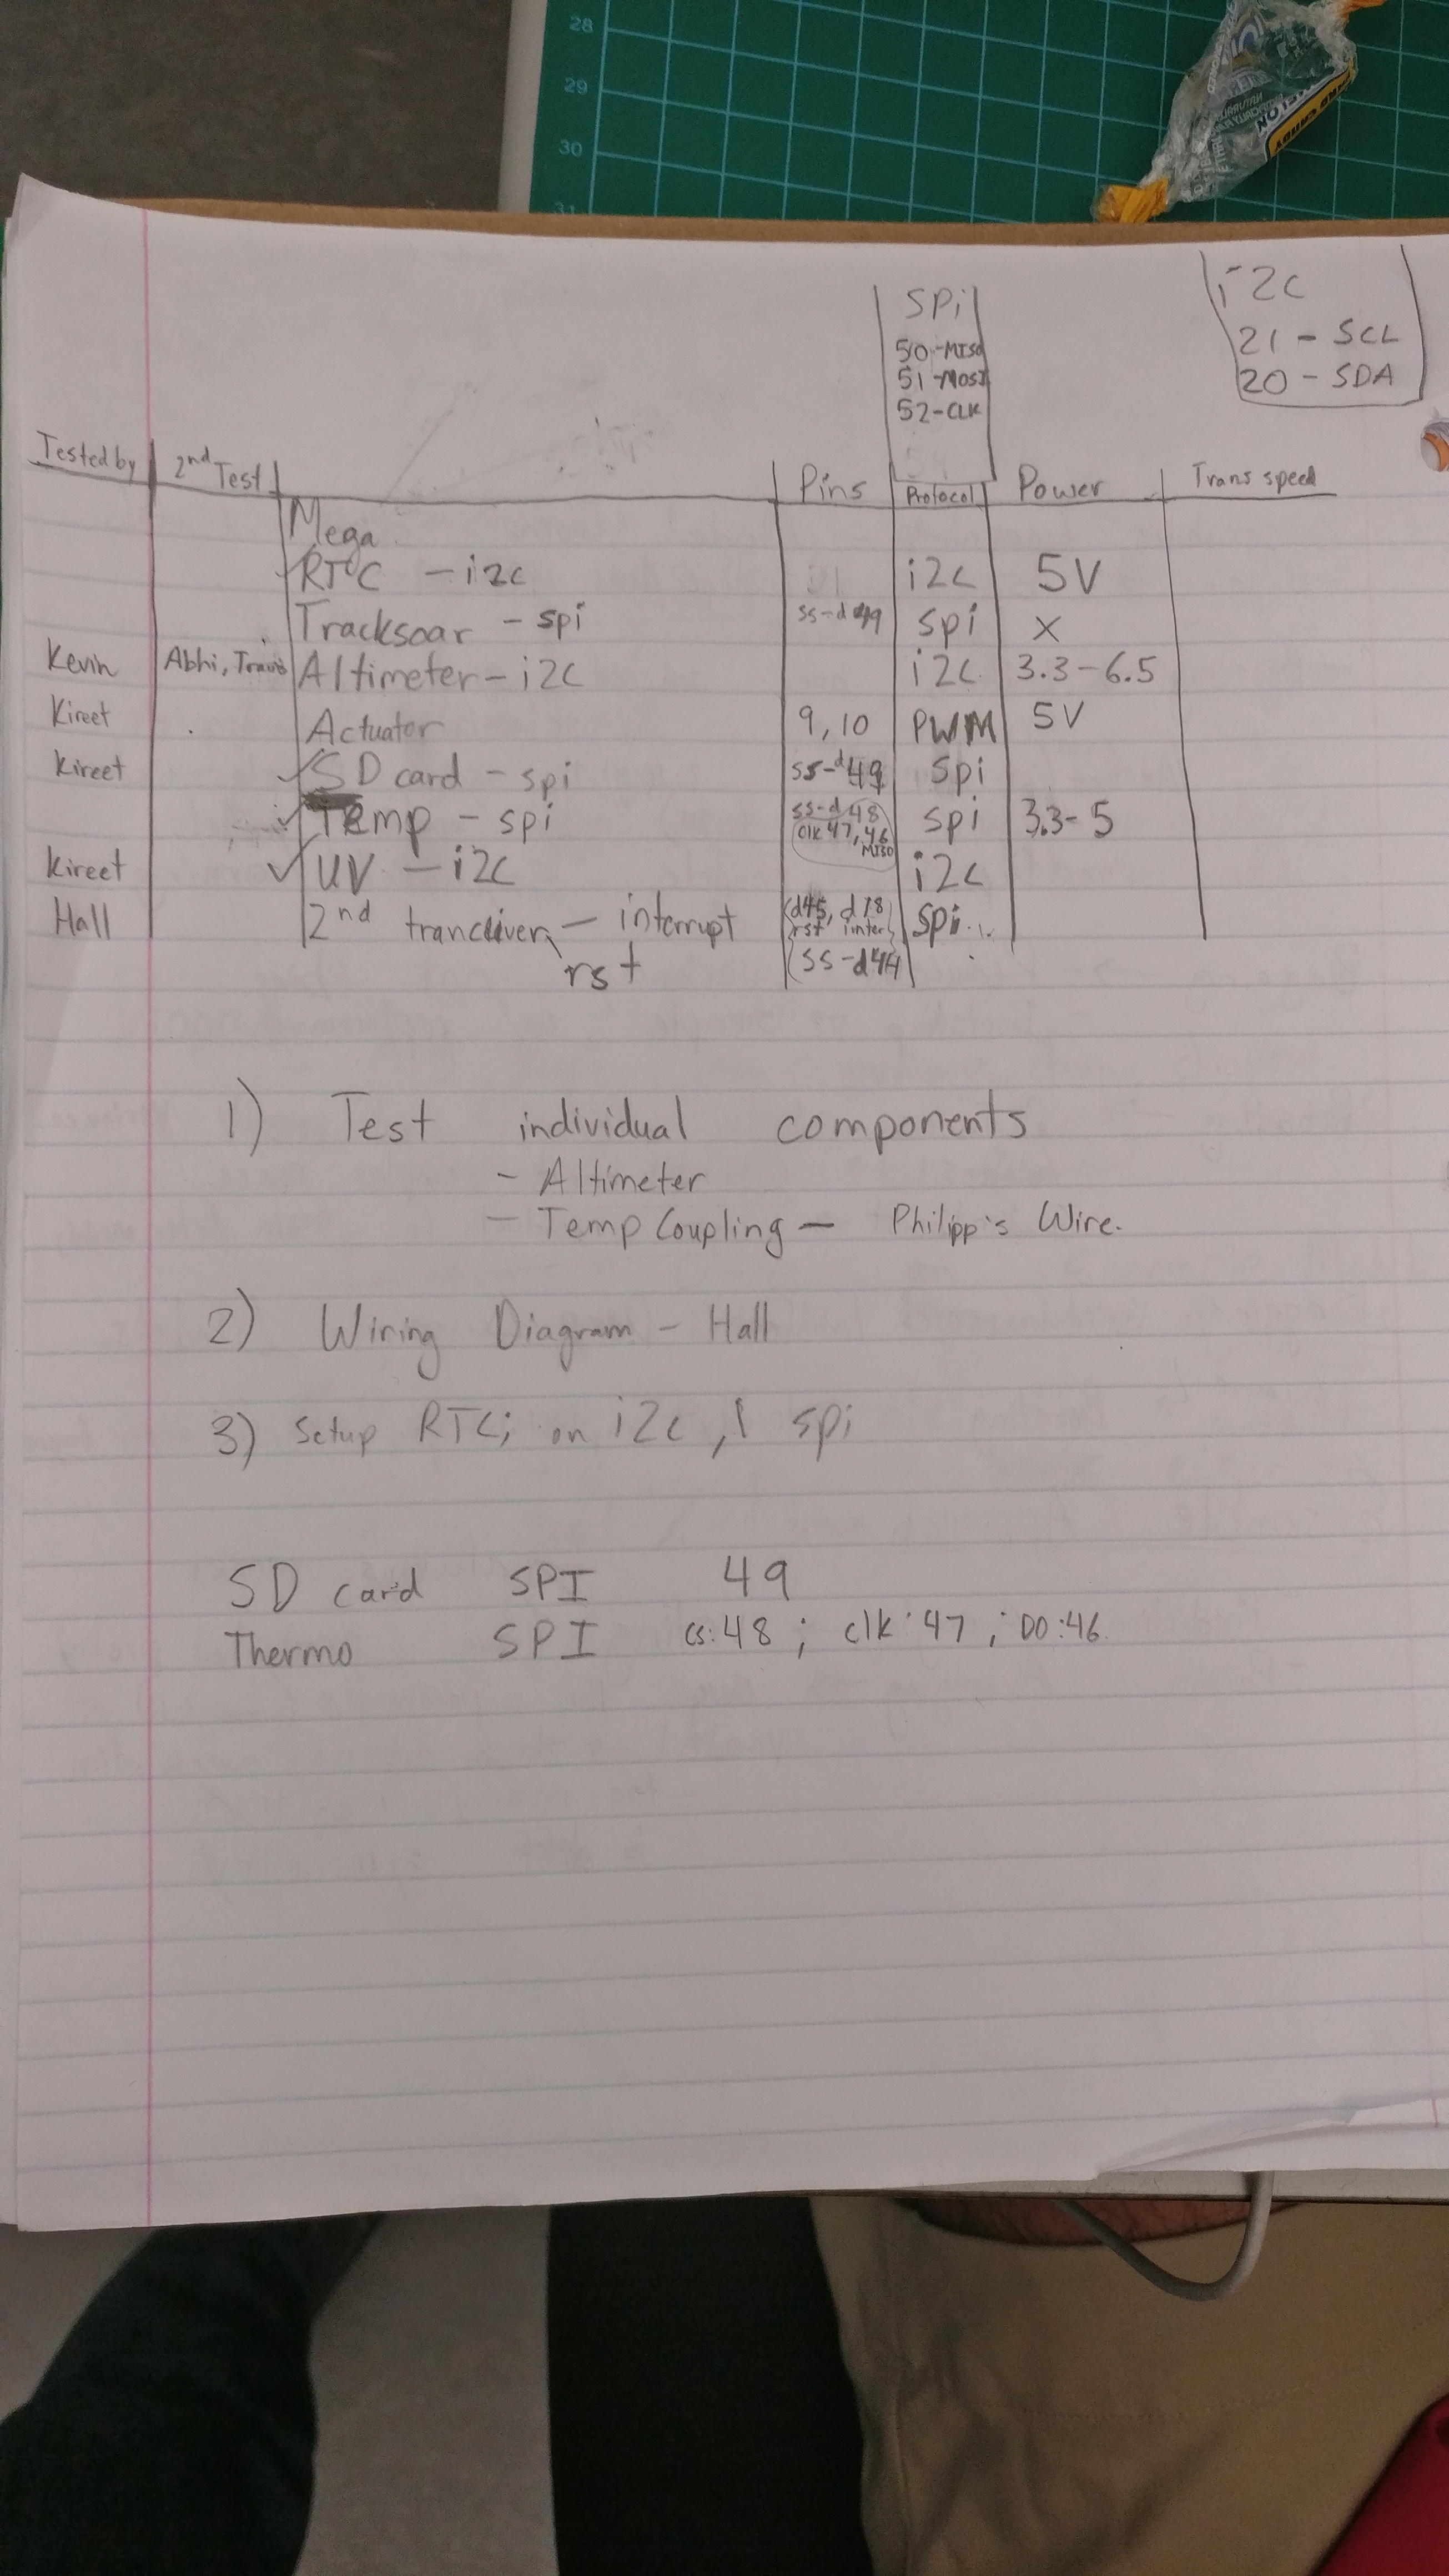 28
29
30
31
SPi
50-MISO
51-MOSI
52-CLK
i2c
21 - SCL
20 - SDA
Tested by 2nd Test Pins Protocol Power Trans speed
Mega
RTC - i2c i2c 5V
Tracksoar - spi ss-d49 spi x
Kevin Abhi, Travis Altimeter - i2c i2c 3.3-6.5
Kireet Actuator 9,10 PWM 5V
Kireet ✓ SD card - spi ss-d49 spi
✓ Temp - spi ss-d48 spi 3.3-5
clk 47, 46
MISO
Kireet ✓ UV - i2c i2c
Hall 2nd tranceiver - interrupt d45, d18 spi
rst inter
rst ss-d44
1) Test individual components
- Altimeter
- Temp Coupling - Philipp's Wire.
2) Wiring Diagram - Hall
3) Setup RTC; on i2c, spi
SD card SPI 49
Thermo SPI cs:48 ; clk:47 ; DO:46